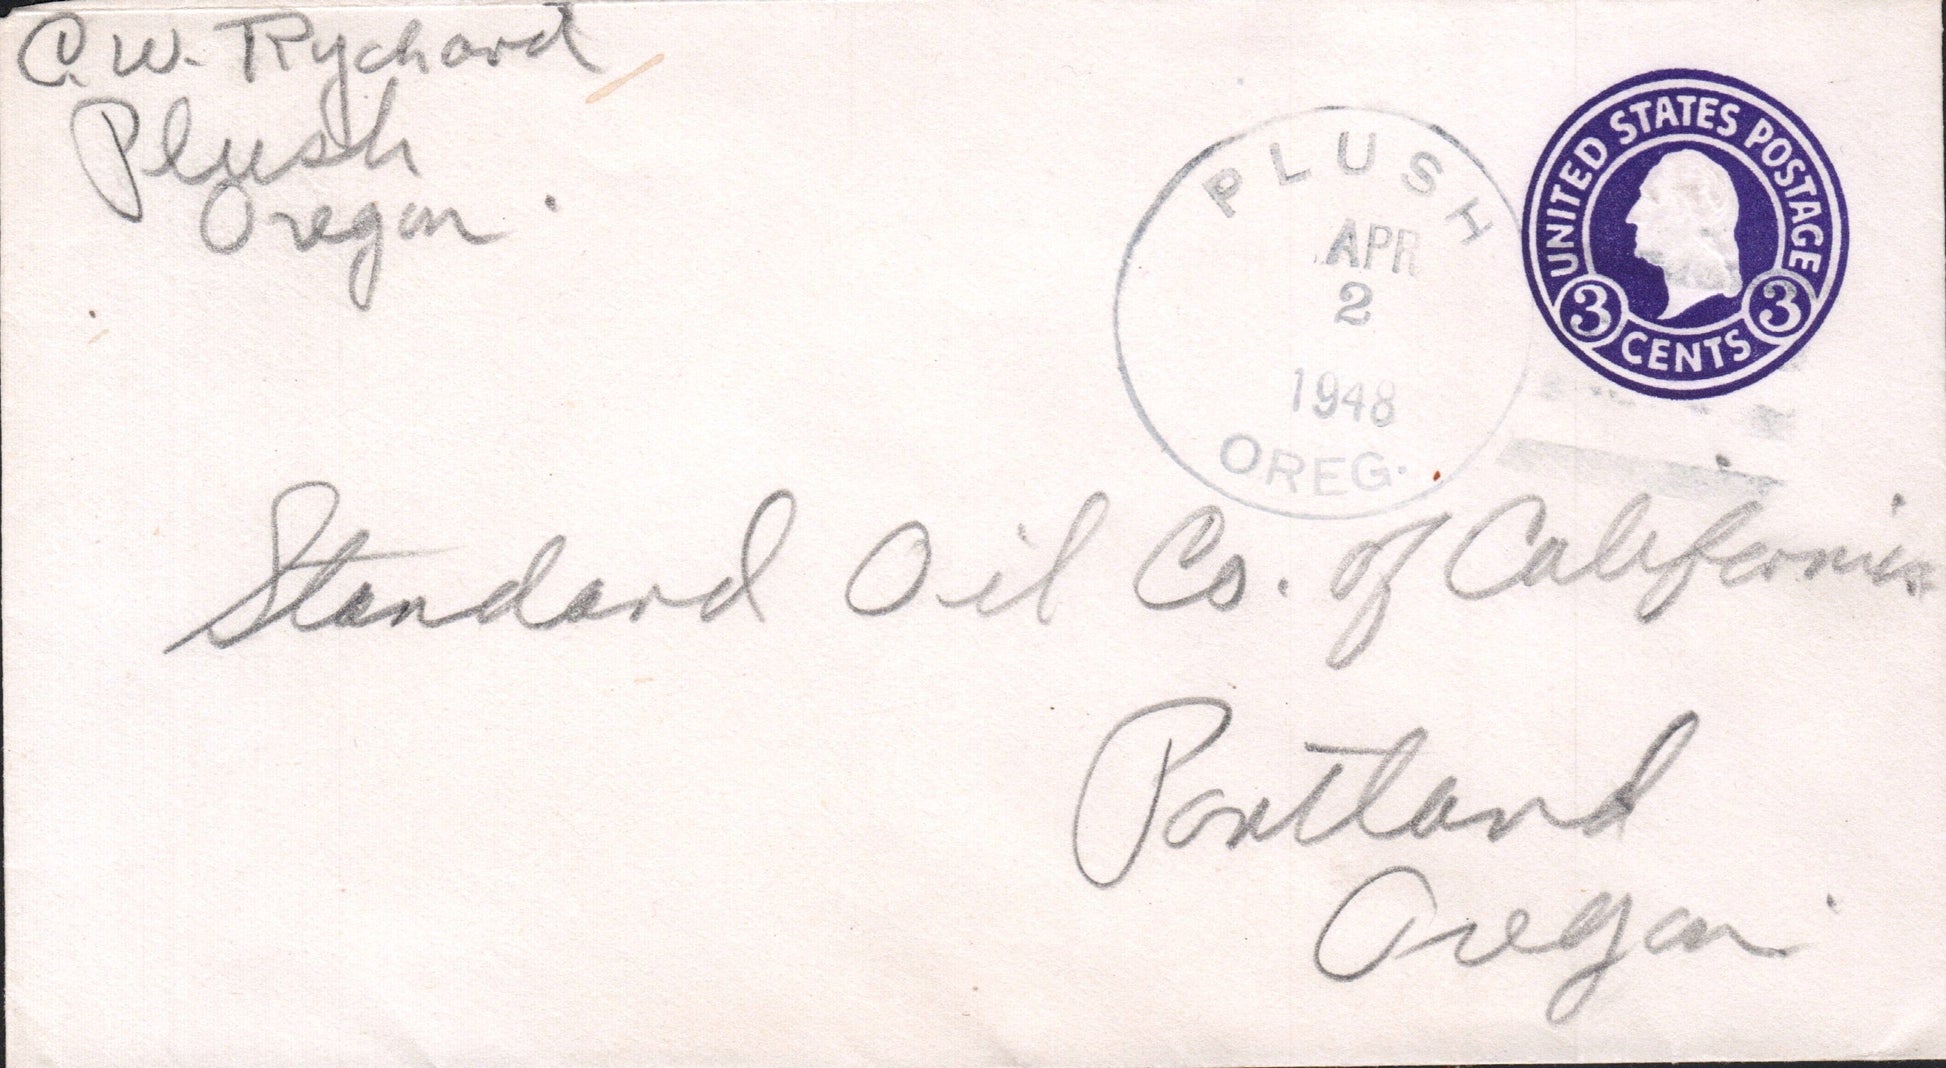 C. W. Rychard
Plush
Oregon.
PLUSH
APR
2
1948
OREG.
UNITED STATES POSTAGE
3 CENTS 3
Standard Oil Co. of California
Portland
Oregon